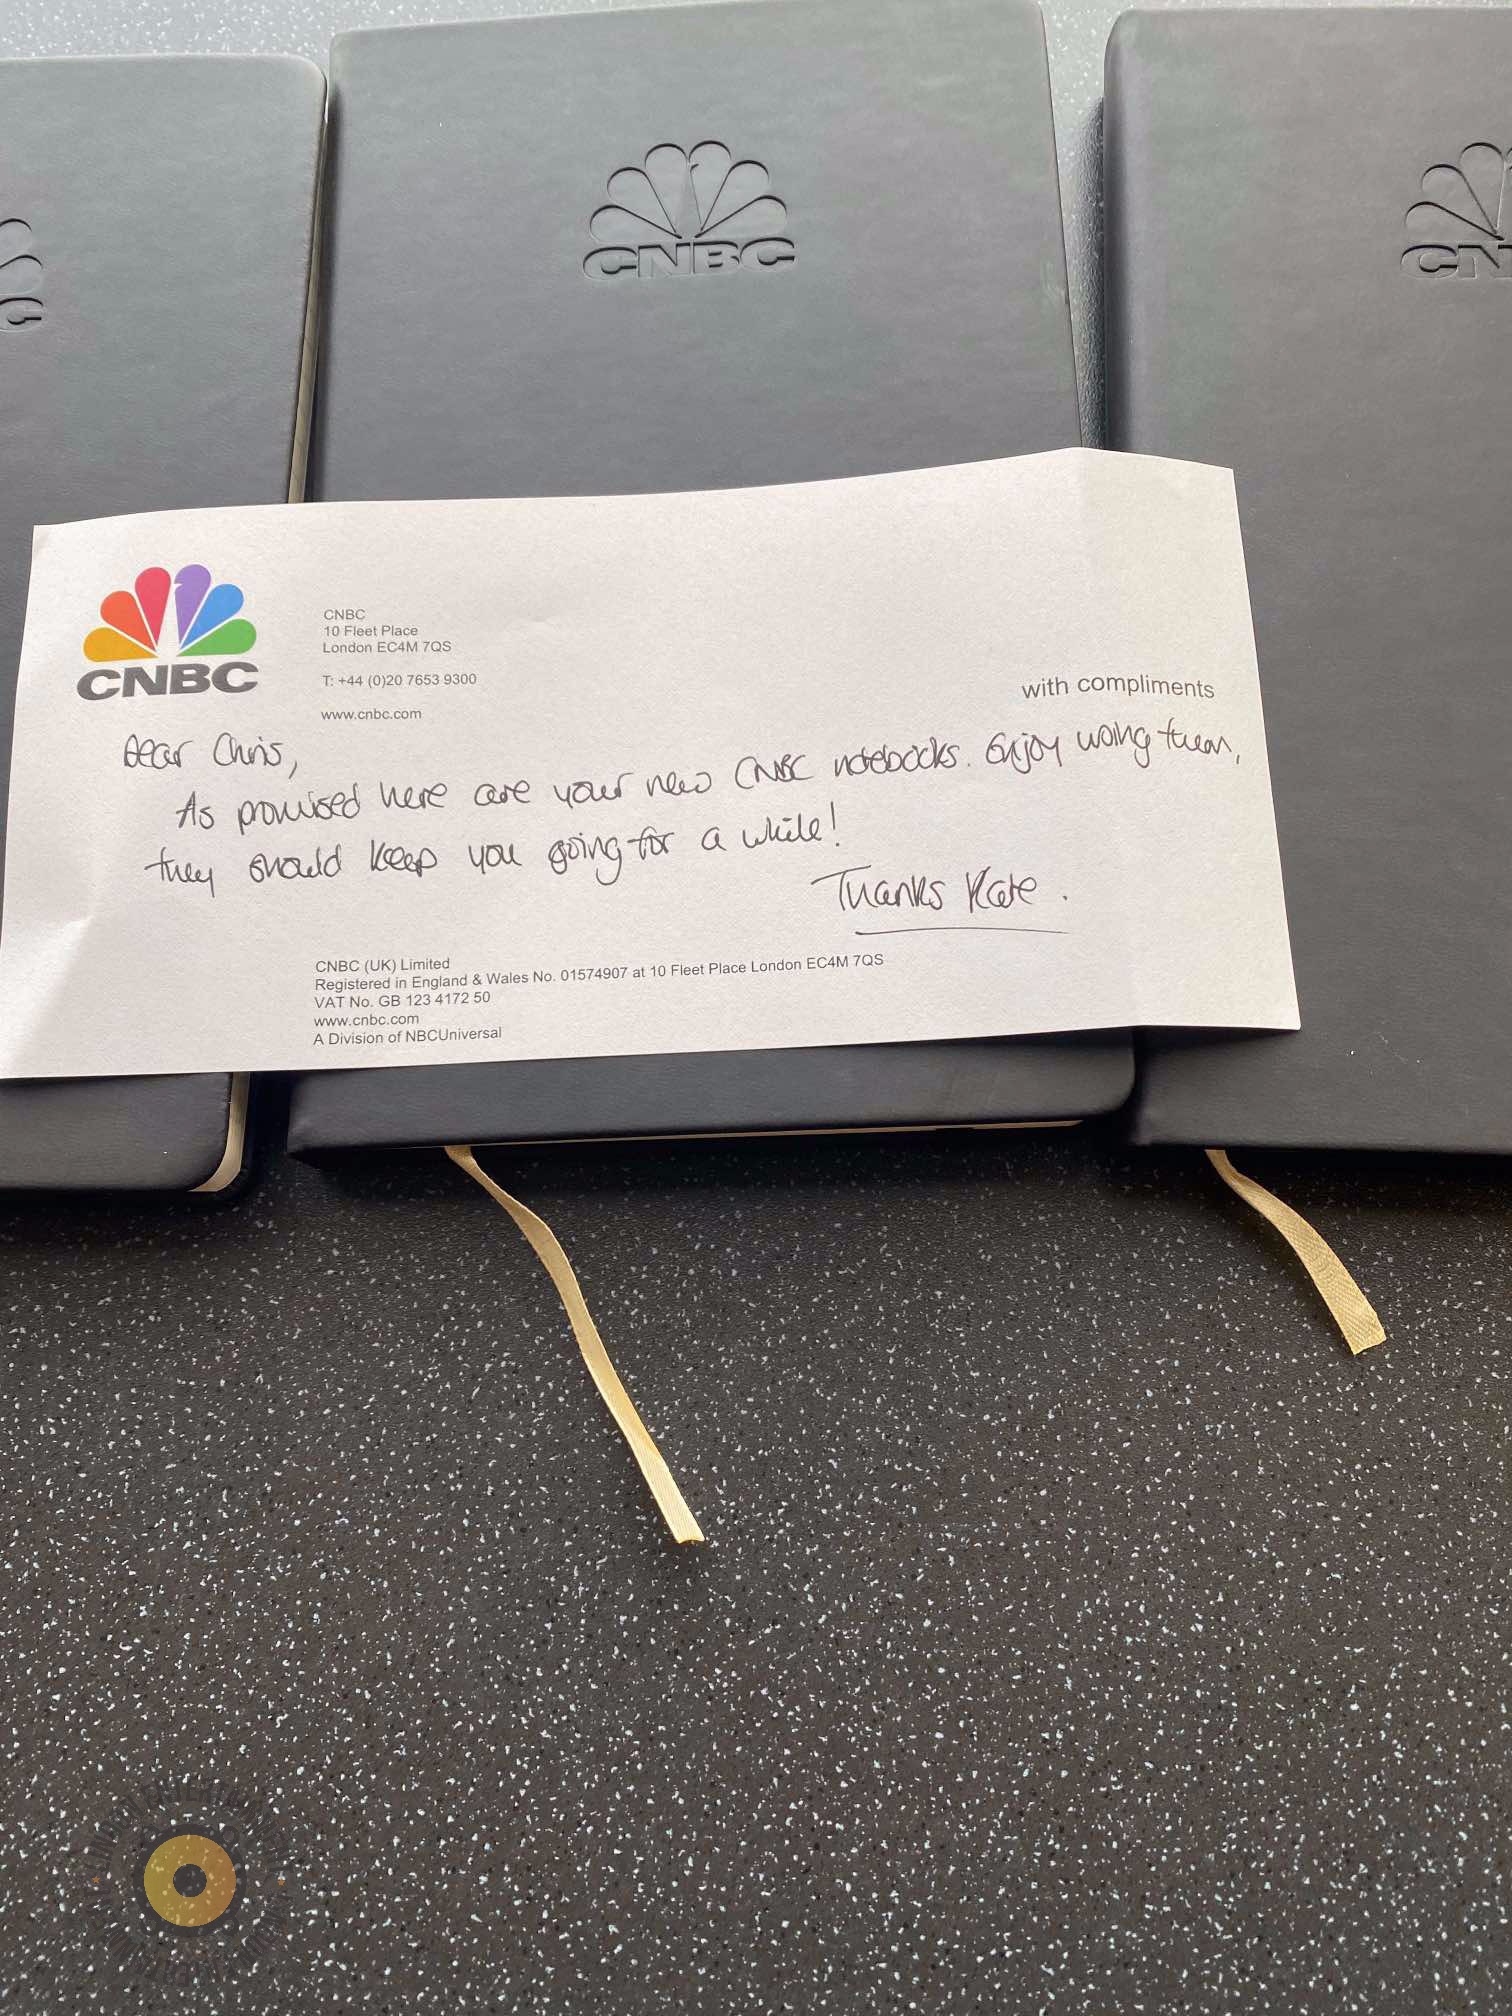 CNBC
CNBC
CNBC
10 Fleet Place
London EC4M 7QS
T: +44 (0)20 7653 9300
www.cnbc.com
with compliments
Dear Chris,
As promised here are your new CNBC notebooks. Enjoy using them,
they should keep you going for a while!
Thanks Kate.
CNBC (UK) Limited
Registered in England & Wales No. 01574907 at 10 Fleet Place London EC4M 7QS
VAT No. GB 123 4172 50
www.cnbc.com
A Division of NBCUniversal